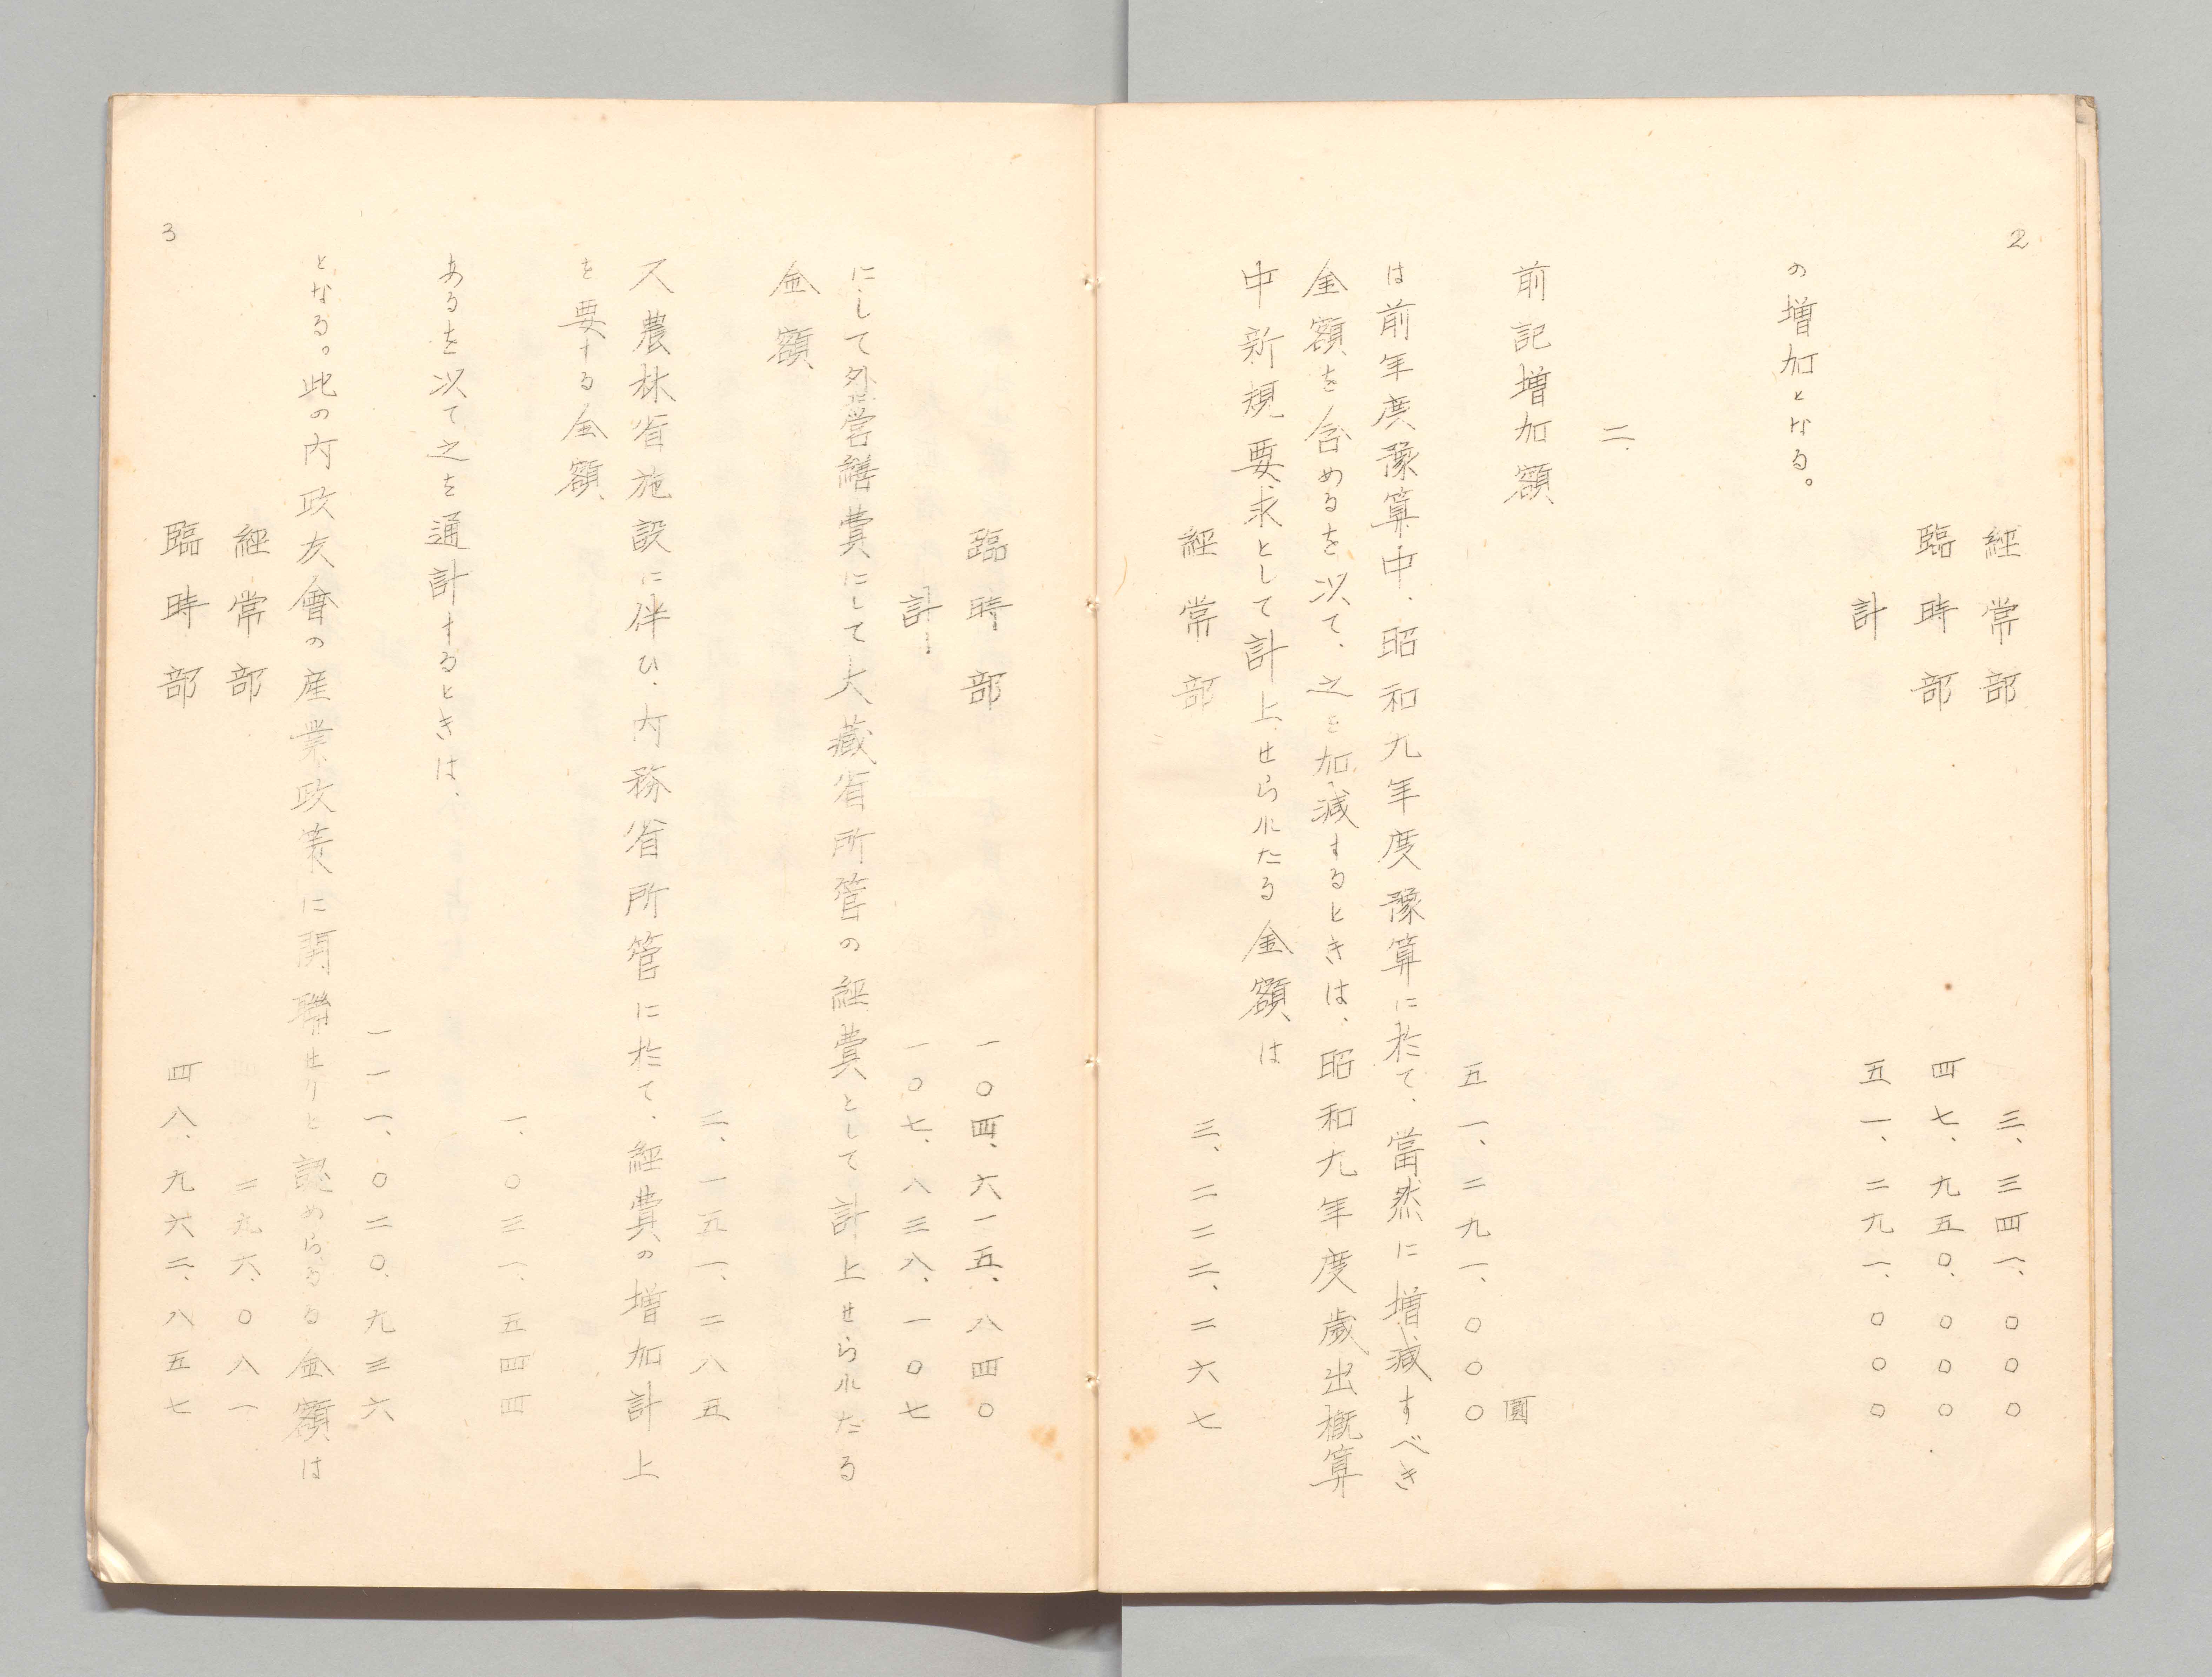 2
經常部 三、三四一、〇〇〇
臨時部 四七、九五〇、〇〇〇
計 五一、二九一、〇〇〇
の増加となる。
二、
前記増加額 圓
五一、二九一、〇〇〇
は前年度豫算中、昭和九年度豫算に於て、當然に増減すべき
金額を含めるを以て、之を加減するときは、昭和九年度歳出概算
中新規要求として計上せられたる金額は
經常部 三、二二二、二六七
臨時部 一〇四、六一五、八四〇
計 一〇七、八三八、一〇七
にして外に營繕費にして大藏省所管の經費として計上せられたる
金額
二、一五一、二八五
又農林省施設に伴ひ、内務省所管に於て、經費の増加計上
を要する金額
一、〇三一、五四四
あるを以て之を通計するときは、
一一一、〇二〇、九三六
となる。此の内政友會の産業政策に関聯せりと認めらるる金額は
經常部 二九六、〇八一
臨時部 四八、九六二、八五七
3